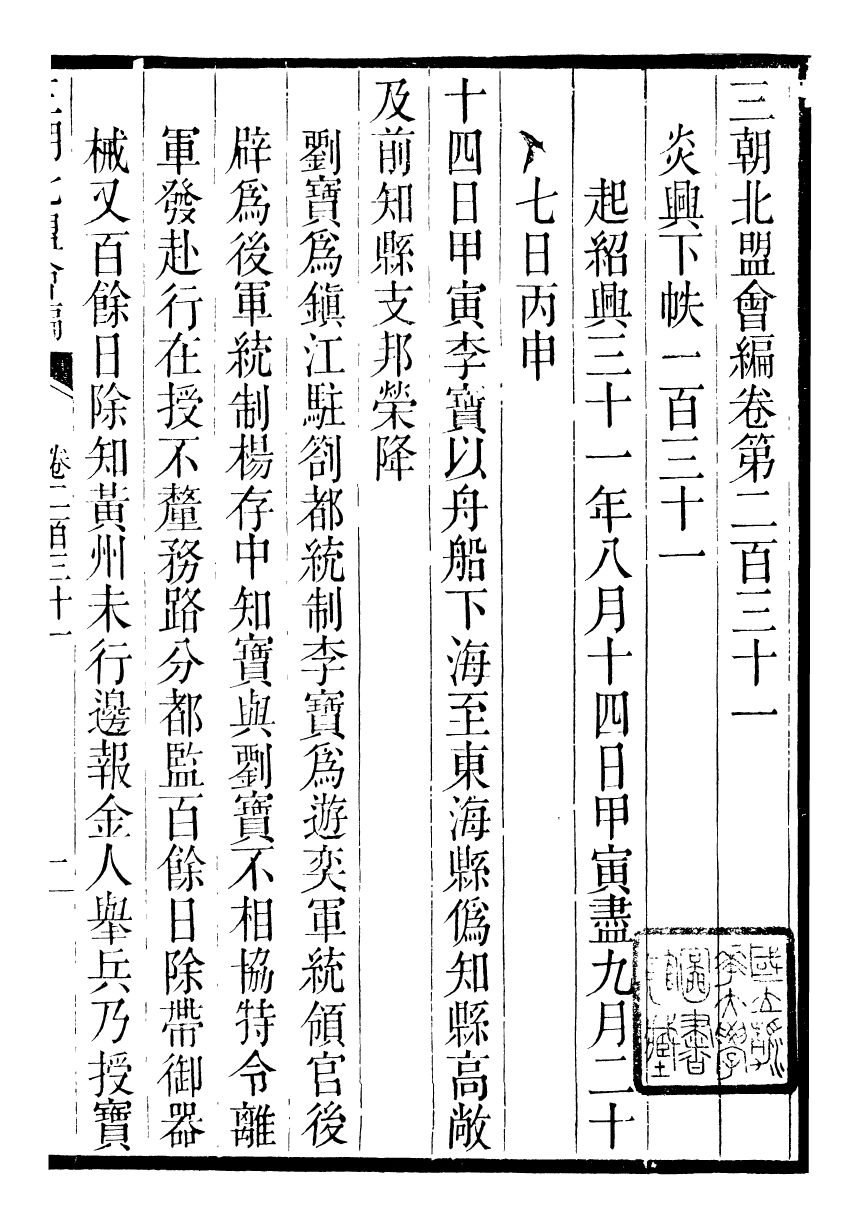 三朝北盟會編卷第二百三十一
炎興下帙一百三十一
起紹興三十一年八月十四日甲寅盡九月二十
七日丙申
十四日甲寅李寶以舟船下海至東海縣僞知縣高敞
及前知縣支邦榮降
劉寶爲鎮江駐劄都統制李寶爲遊奕軍統領官後
辟爲後軍統制楊存中知寶與劉寶不相協特令離
軍發赴行在授不釐務路分都監百餘日除帶御器
械又百餘日除知黃州未行邊報金人舉兵乃授寶
三朝北盟會編 卷二百三十一 一
國立清華大學圖書館藏